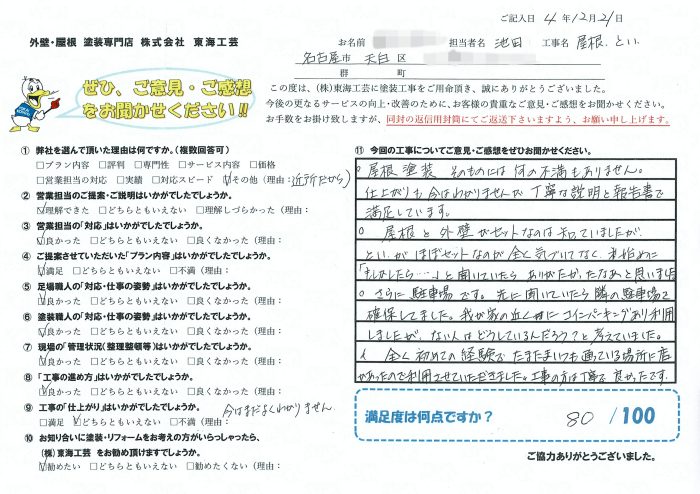 ご記入日 4年12月21日
外壁・屋根 塗装専門店 株式会社 東海工芸
お名前 担当者名 池田 工事名 屋根、とい
名古屋市 天白区
郡 町
ぜひ、ご意見・ご感想
をお聞かせください!!
この度は、(株)東海工芸に塗装工事をご用命頂き、誠にありがとうございました。
今後の更なるサービスの向上・改善のために、お客様の貴重なご意見・ご感想をお聞かせください。
お手数をお掛け致しますが、同封の返信用封筒にてご返送下さいますよう、お願い申し上げます。
① 弊社を選んで頂いた理由は何ですか。(複数回答可)
□プラン内容 □評判 □専門性 □サービス内容 □価格
□営業担当の対応 □実績 □対応スピード ☑その他(理由:近所だから)
② 営業担当のご提案・ご説明はいかがでしたでしょうか。
☑理解できた □どちらともいえない □理解しづらかった(理由:
③ 営業担当の「対応」はいかがでしたでしょうか。
☑良かった □どちらともいえない □良くなかった(理由:
④ ご提案させていただいた「プラン内容」はいかがでしたでしょうか。
☑満足 □どちらともいえない □不満(理由:
⑤ 足場職人の「対応・仕事の姿勢」はいかがでしたでしょうか。
☑良かった □どちらともいえない □良くなかった(理由:
⑥ 塗装職人の「対応・仕事の姿勢」はいかがでしたでしょうか。
☑良かった □どちらともいえない □良くなかった(理由:
⑦ 現場の「管理状況(整理整頓等)」はいかがでしたでしょうか。
☑良かった □どちらともいえない □良くなかった(理由:
⑧ 「工事の進め方」はいかがでしたでしょうか。
☑良かった □どちらともいえない □良くなかった(理由:
⑨ 工事の「仕上がり」はいかがでしたでしょうか。 今はまだよくわかりません
□満足 ☑どちらともいえない □不満(理由:
⑩ お知り合いに塗装・リフォームをお考えの方がいらっしゃったら、
(株)東海工芸 をお勧め頂けますでしょうか。
☑勧めたい □どちらともいえない □勧めたくない(理由:
⑪ 今回の工事についてご意見・ご感想をぜひお聞かせください。
○屋根塗装そのものには何の不満もありません。
仕上がりも今はわかりませんが丁寧な説明と報告書で
満足しています。
○屋根と外壁がセットなのは知っていましたが
といがほぼセットなのが全く気づいてなく、
「もしましたら…」と聞いていたらありがたかったなあと思います
○さらに駐車場です。先に聞いていたら隣の駐車場で
確保してました。我が家の近く Coインパーキングあり利用
しましたが、ない人はどうしているんだろう?と考えていました。
全く初めての経験でたまたまいつも通っている場所に店
があったので利用させていただきました。工事の方は丁寧で良かったです。
満足度は何点ですか? 80/100
ご協力ありがとうございました。